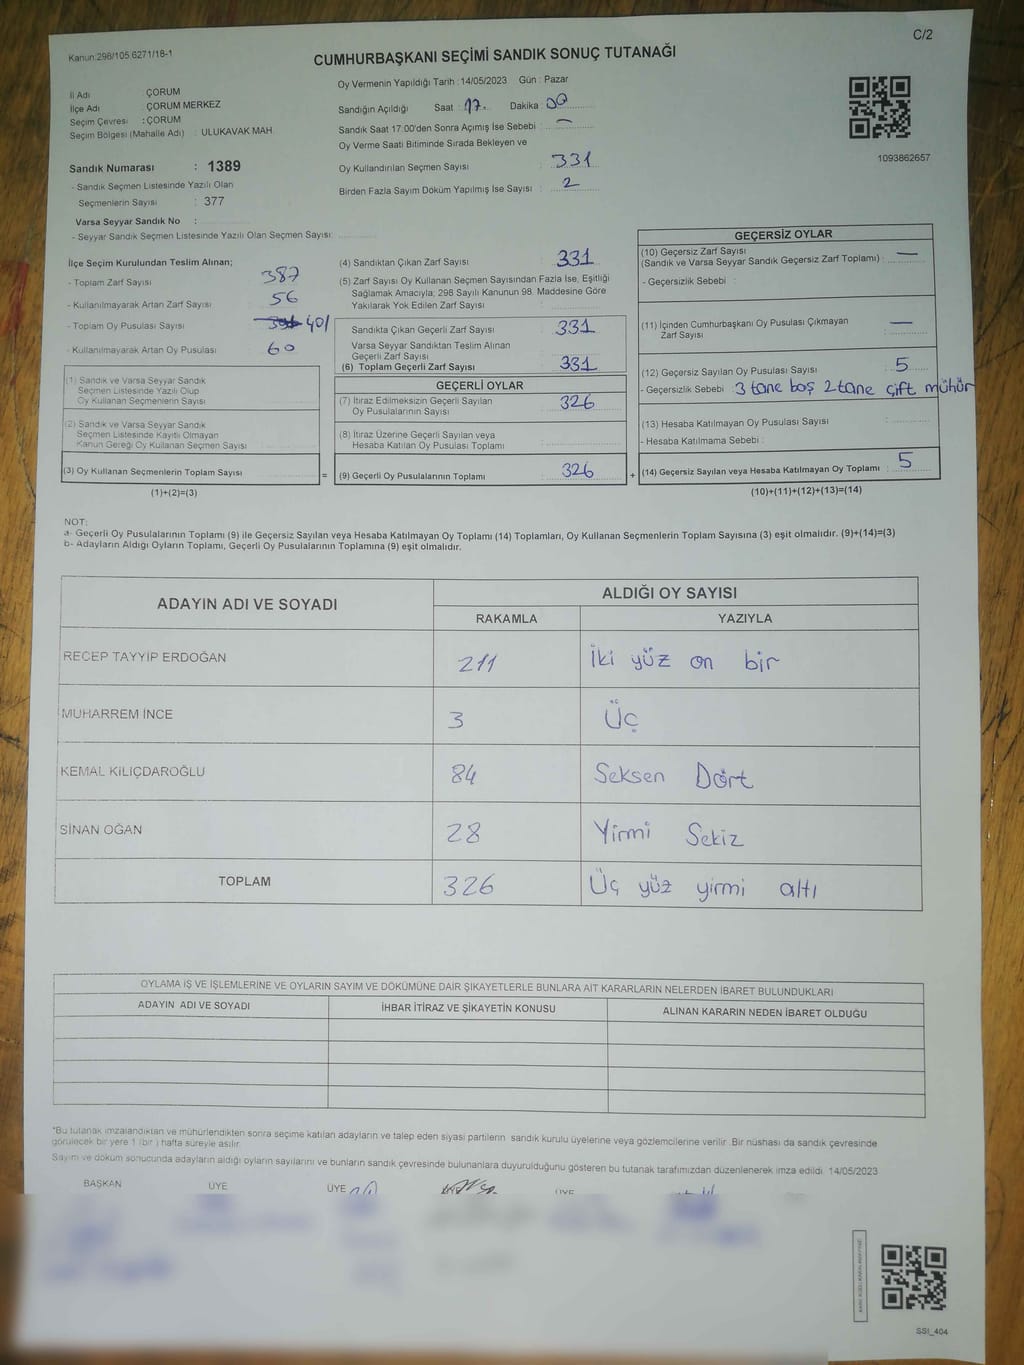 C/2
Kanun:298/105 6271/18-1
CUMHURBAŞKANI SEÇİMİ SANDIK SONUÇ TUTANAĞI
İl Adı ÇORUM
İlçe Adı ÇORUM MERKEZ
Seçim Çevresi : ÇORUM
Seçim Bölgesi (Mahalle Adı) : ULUKAVAK MAH.
Sandık Numarası : 1389
- Sandık Seçmen Listesinde Yazılı Olan
Seçmenlerin Sayısı : 377
Varsa Seyyar Sandık No :
- Seyyar Sandık Seçmen Listesinde Yazılı Olan Seçmen Sayısı:
Oy Vermenin Yapıldığı Tarih : 14/05/2023 Gün : Pazar
Sandığın Açıldığı Saat : 17. Dakika : 00
Sandık Saat 17:00'den Sonra Açımış İse Sebebi : —
Oy Verme Saati Bitiminde Sırada Bekleyen ve
Oy Kullandırılan Seçmen Sayısı : 331
Birden Fazla Sayım Döküm Yapılmış İse Sayısı : 2
1093862657
İlçe Seçim Kurulundan Teslim Alınan;
- Toplam Zarf Sayısı 387
- Kullanılmayarak Artan Zarf Sayısı 56
- Toplam Oy Pusulası Sayısı 401
- Kullanılmayarak Artan Oy Pusulası 60
(1) Sandık ve Varsa Seyyar Sandık
Seçmen Listesinde Yazılı Olup
Oy Kullanan Seçmenlerin Sayısı
(2) Sandık ve Varsa Seyyar Sandık
Seçmen Listesinde Kayıtlı Olmayan
Kanun Gereği Oy Kullanan Seçmen Sayısı
(3) Oy Kullanan Seçmenlerin Toplam Sayısı =
(1)+(2)=(3)
(4) Sandıktan Çıkan Zarf Sayısı : 331
(5) Zarf Sayısı Oy Kullanan Seçmen Sayısından Fazla İse, Eşitliği
Sağlamak Amacıyla; 298 Sayılı Kanunun 98. Maddesine Göre
Yakılarak Yok Edilen Zarf Sayısı
Sandıkta Çıkan Geçerli Zarf Sayısı : 331
Varsa Seyyar Sandıktan Teslim Alınan
Geçerli Zarf Sayısı
(6) Toplam Geçerli Zarf Sayısı : 331
GEÇERLİ OYLAR
(7) İtiraz Edilmeksizin Geçerli Sayılan
Oy Pusulalarının Sayısı : 326
(8) İtiraz Üzerine Geçerli Sayılan veya
Hesaba Katılan Oy Pusulası Toplamı
(9) Geçerli Oy Pusulalarının Toplamı : 326 +
GEÇERSİZ OYLAR
(10) Geçersiz Zarf Sayısı
(Sandık ve Varsa Seyyar Sandık Geçersiz Zarf Toplamı) : —
- Geçersizlik Sebebi :
(11) İçinden Cumhurbaşkanı Oy Pusulası Çıkmayan
Zarf Sayısı —
(12) Geçersiz Sayılan Oy Pusulası Sayısı : 5
- Geçersizlik Sebebi : 3 tane boş 2 tane çift mühür
(13) Hesaba Katılmayan Oy Pusulası Sayısı
- Hesaba Katılmama Sebebi :
(14) Geçersiz Sayılan veya Hesaba Katılmayan Oy Toplamı : 5
(10)+(11)+(12)+(13)=(14)
NOT:
a- Geçerli Oy Pusulalarının Toplamı (9) ile Geçersiz Sayılan veya Hesaba Katılmayan Oy Toplamı (14) Toplamları, Oy Kullanan Seçmenlerin Toplam Sayısına (3) eşit olmalıdır. (9)+(14)=(3)
b- Adayların Aldığı Oyların Toplamı, Geçerli Oy Pusulalarının Toplamına (9) eşit olmalıdır.
ADAYIN ADI VE SOYADI ALDIĞI OY SAYISI
RAKAMLA YAZIYLA
RECEP TAYYİP ERDOĞAN 211 İki yüz on bir
MUHARREM İNCE 3 Üç
KEMAL KILIÇDAROĞLU 84 Seksen Dört
SİNAN OĞAN 28 Yirmi Sekiz
TOPLAM 326 Üç yüz yirmi altı
OYLAMA İŞ VE İŞLEMLERİNE VE OYLARIN SAYIM VE DÖKÜMÜNE DAİR ŞİKAYETLERLE BUNLARA AİT KARARLARIN NELERDEN İBARET BULUNDUKLARI
ADAYIN ADI VE SOYADI İHBAR İTİRAZ VE ŞİKAYETİN KONUSU ALINAN KARARIN NEDEN İBARET OLDUĞU
*Bu tutanak imzalandıktan ve mühürlendikten sonra seçime katılan adayların ve talep eden siyasi partilerin sandık kurulu üyelerine veya gözlemcilerine verilir. Bir nüshası da sandık çevresinde
görülecek bir yere 1 (bir) hafta süreyle asılır.
Sayım ve döküm sonucunda adayların aldığı oyların sayılarını ve bunların sandık çevresinde bulunanlara duyurulduğunu gösteren bu tutanak tarafımızdan düzenlenerek imza edildi. 14/05/2023
BAŞKAN ÜYE ÜYE ÜYE
SSİ_404